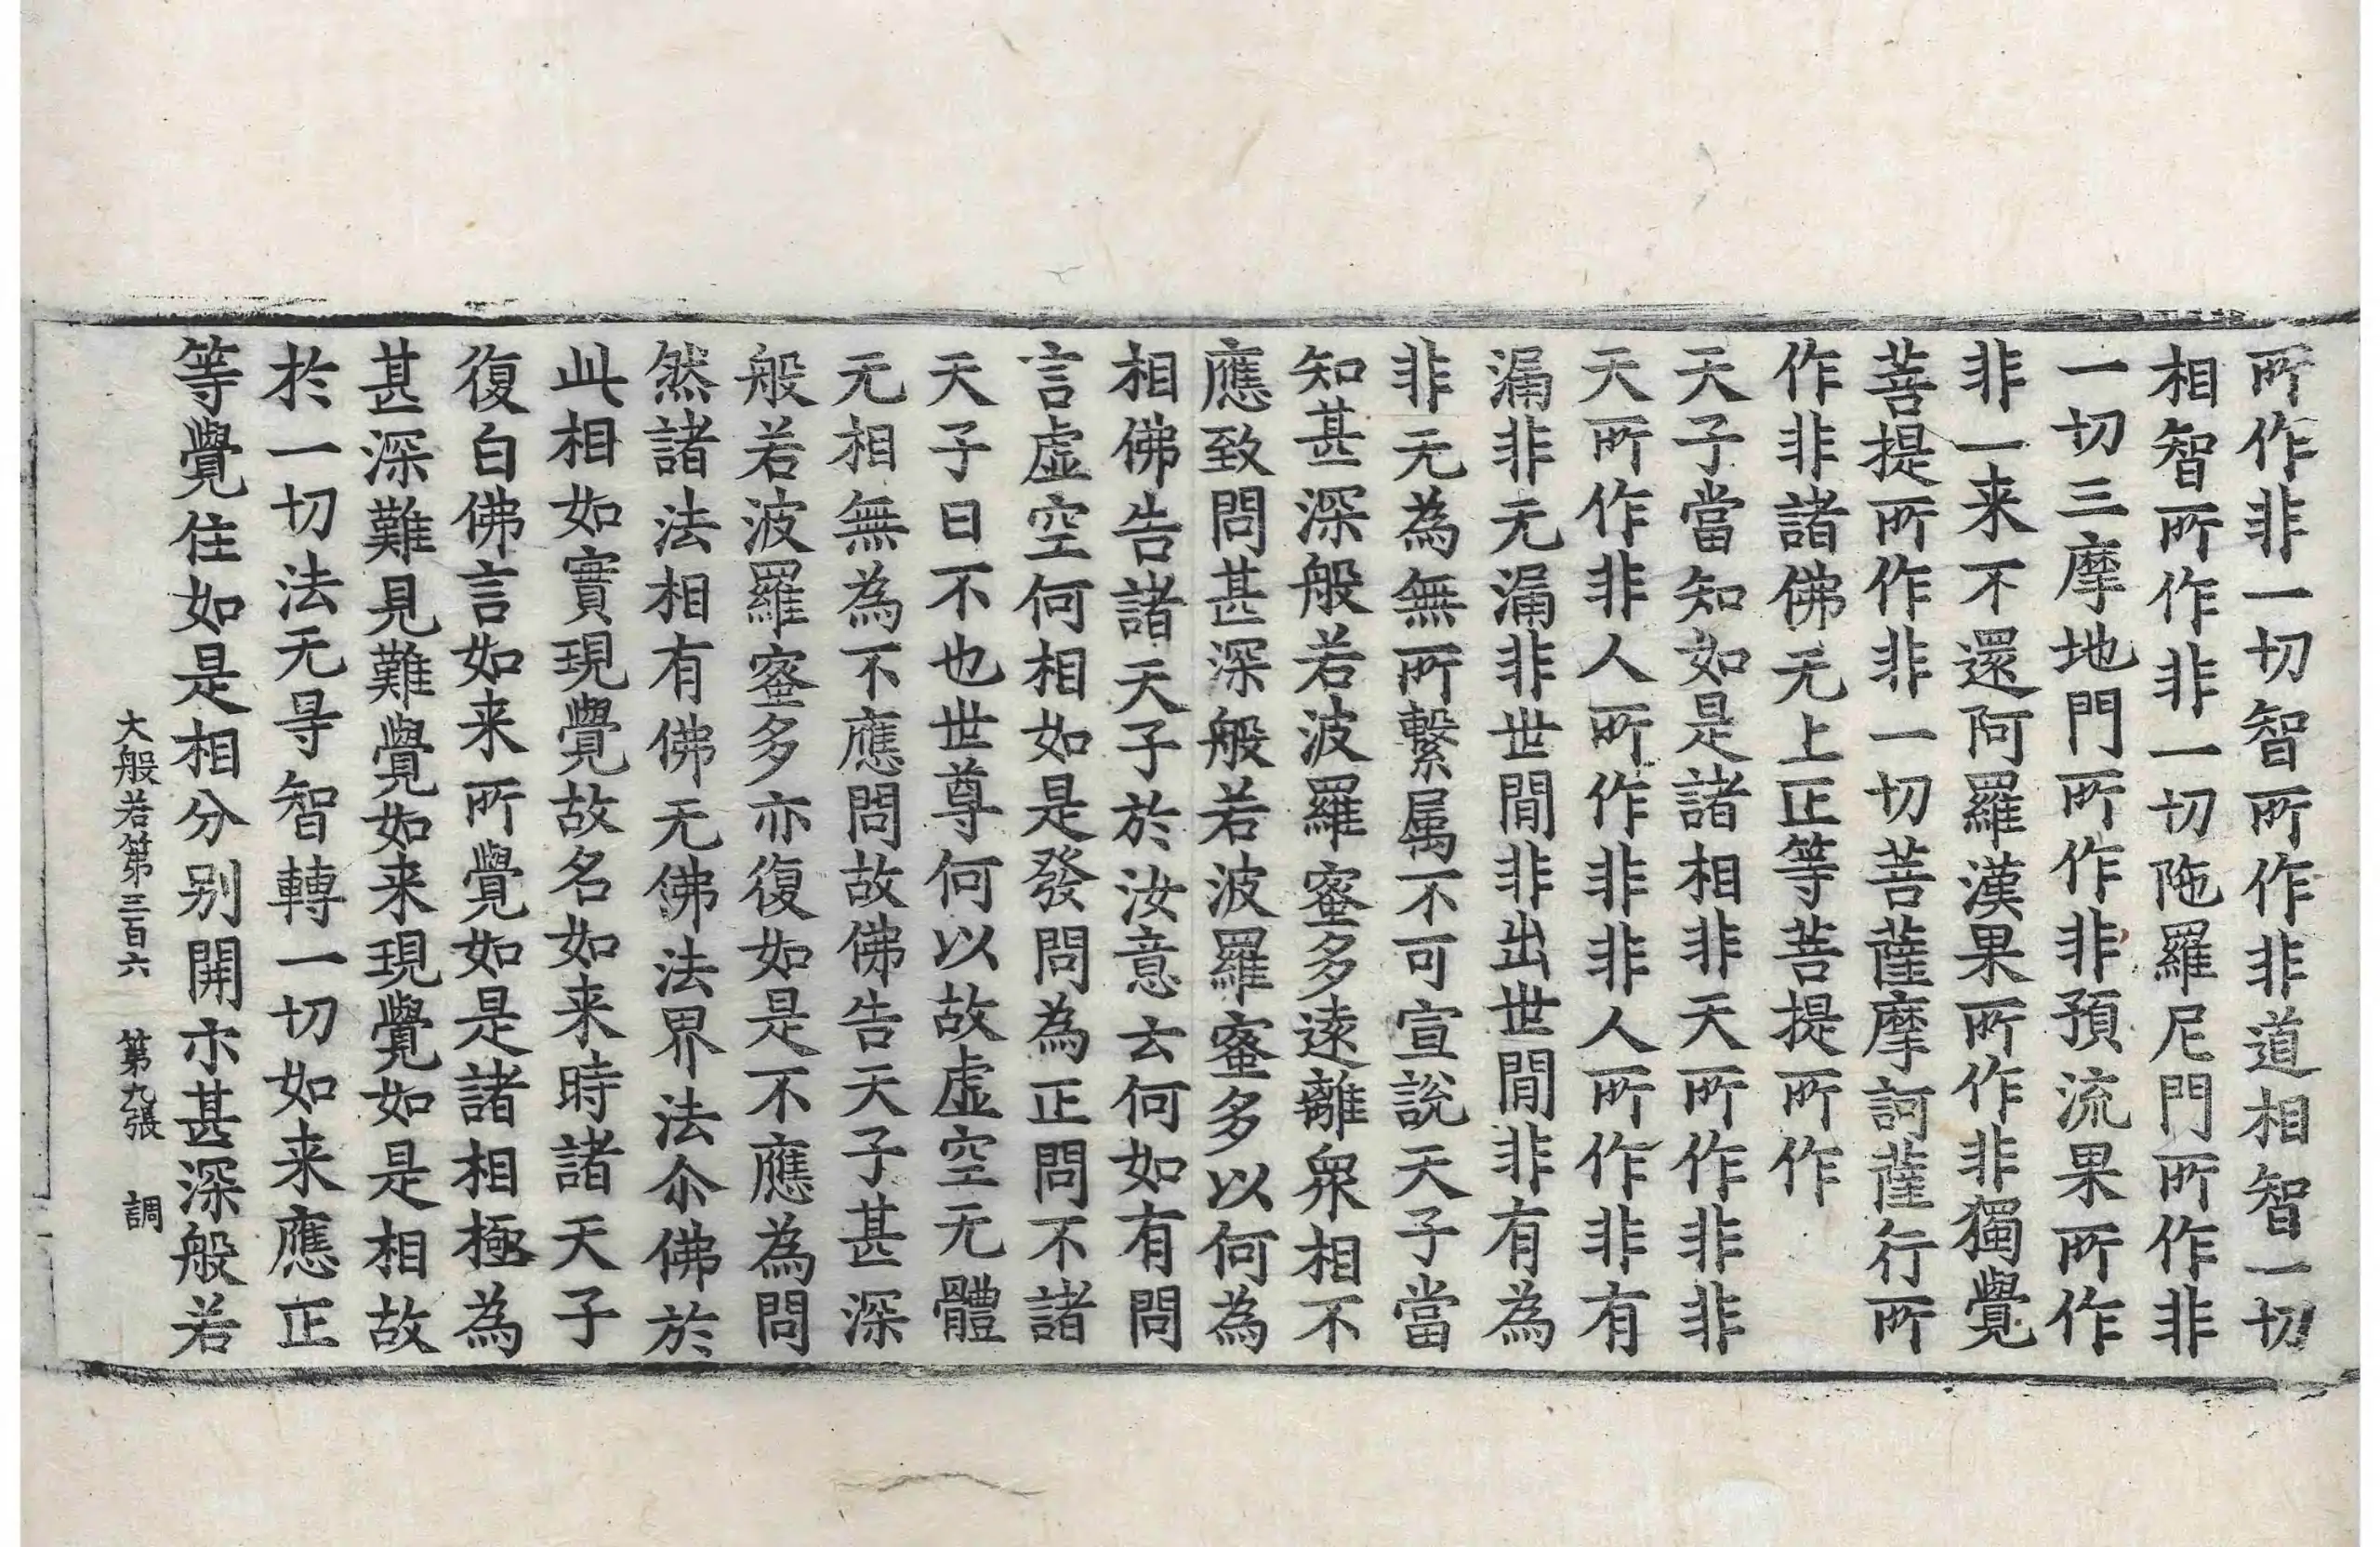 所作非一切智所作非道相智一切
相智所作非一切陁羅尼門所作非
一切三摩地門所作非預流果所作
非一来不還阿羅漢果所作非獨覺
菩提所作非一切菩薩摩訶薩行所
作非諸佛无上正等菩提所作
天子當知如是諸相非天所作非非
天所作非人所作非非人所作非有
漏非无漏非世間非出世間非有為
非无為無所繫属不可宣說天子當
知甚深般若波羅蜜多遠離衆相不
應致問甚深般若波羅蜜多以何為
相佛告諸天子於汝意云何如有問
言虛空何相如是發問為正問不諸
天子曰不也世尊何以故虛空无體
无相無為不應問故佛告天子甚深
般若波羅蜜多亦復如是不應為問
然諸法相有佛无佛法界法尒佛於
此相如實現覺故名如来時諸天子
復白佛言如来所覺如是諸相極為
甚深難見難覺如来現覺如是相故
於一切法无㝵智轉一切如来應正
等覺住如是相分別開示甚深般若
大般若第三百六　第九張　調